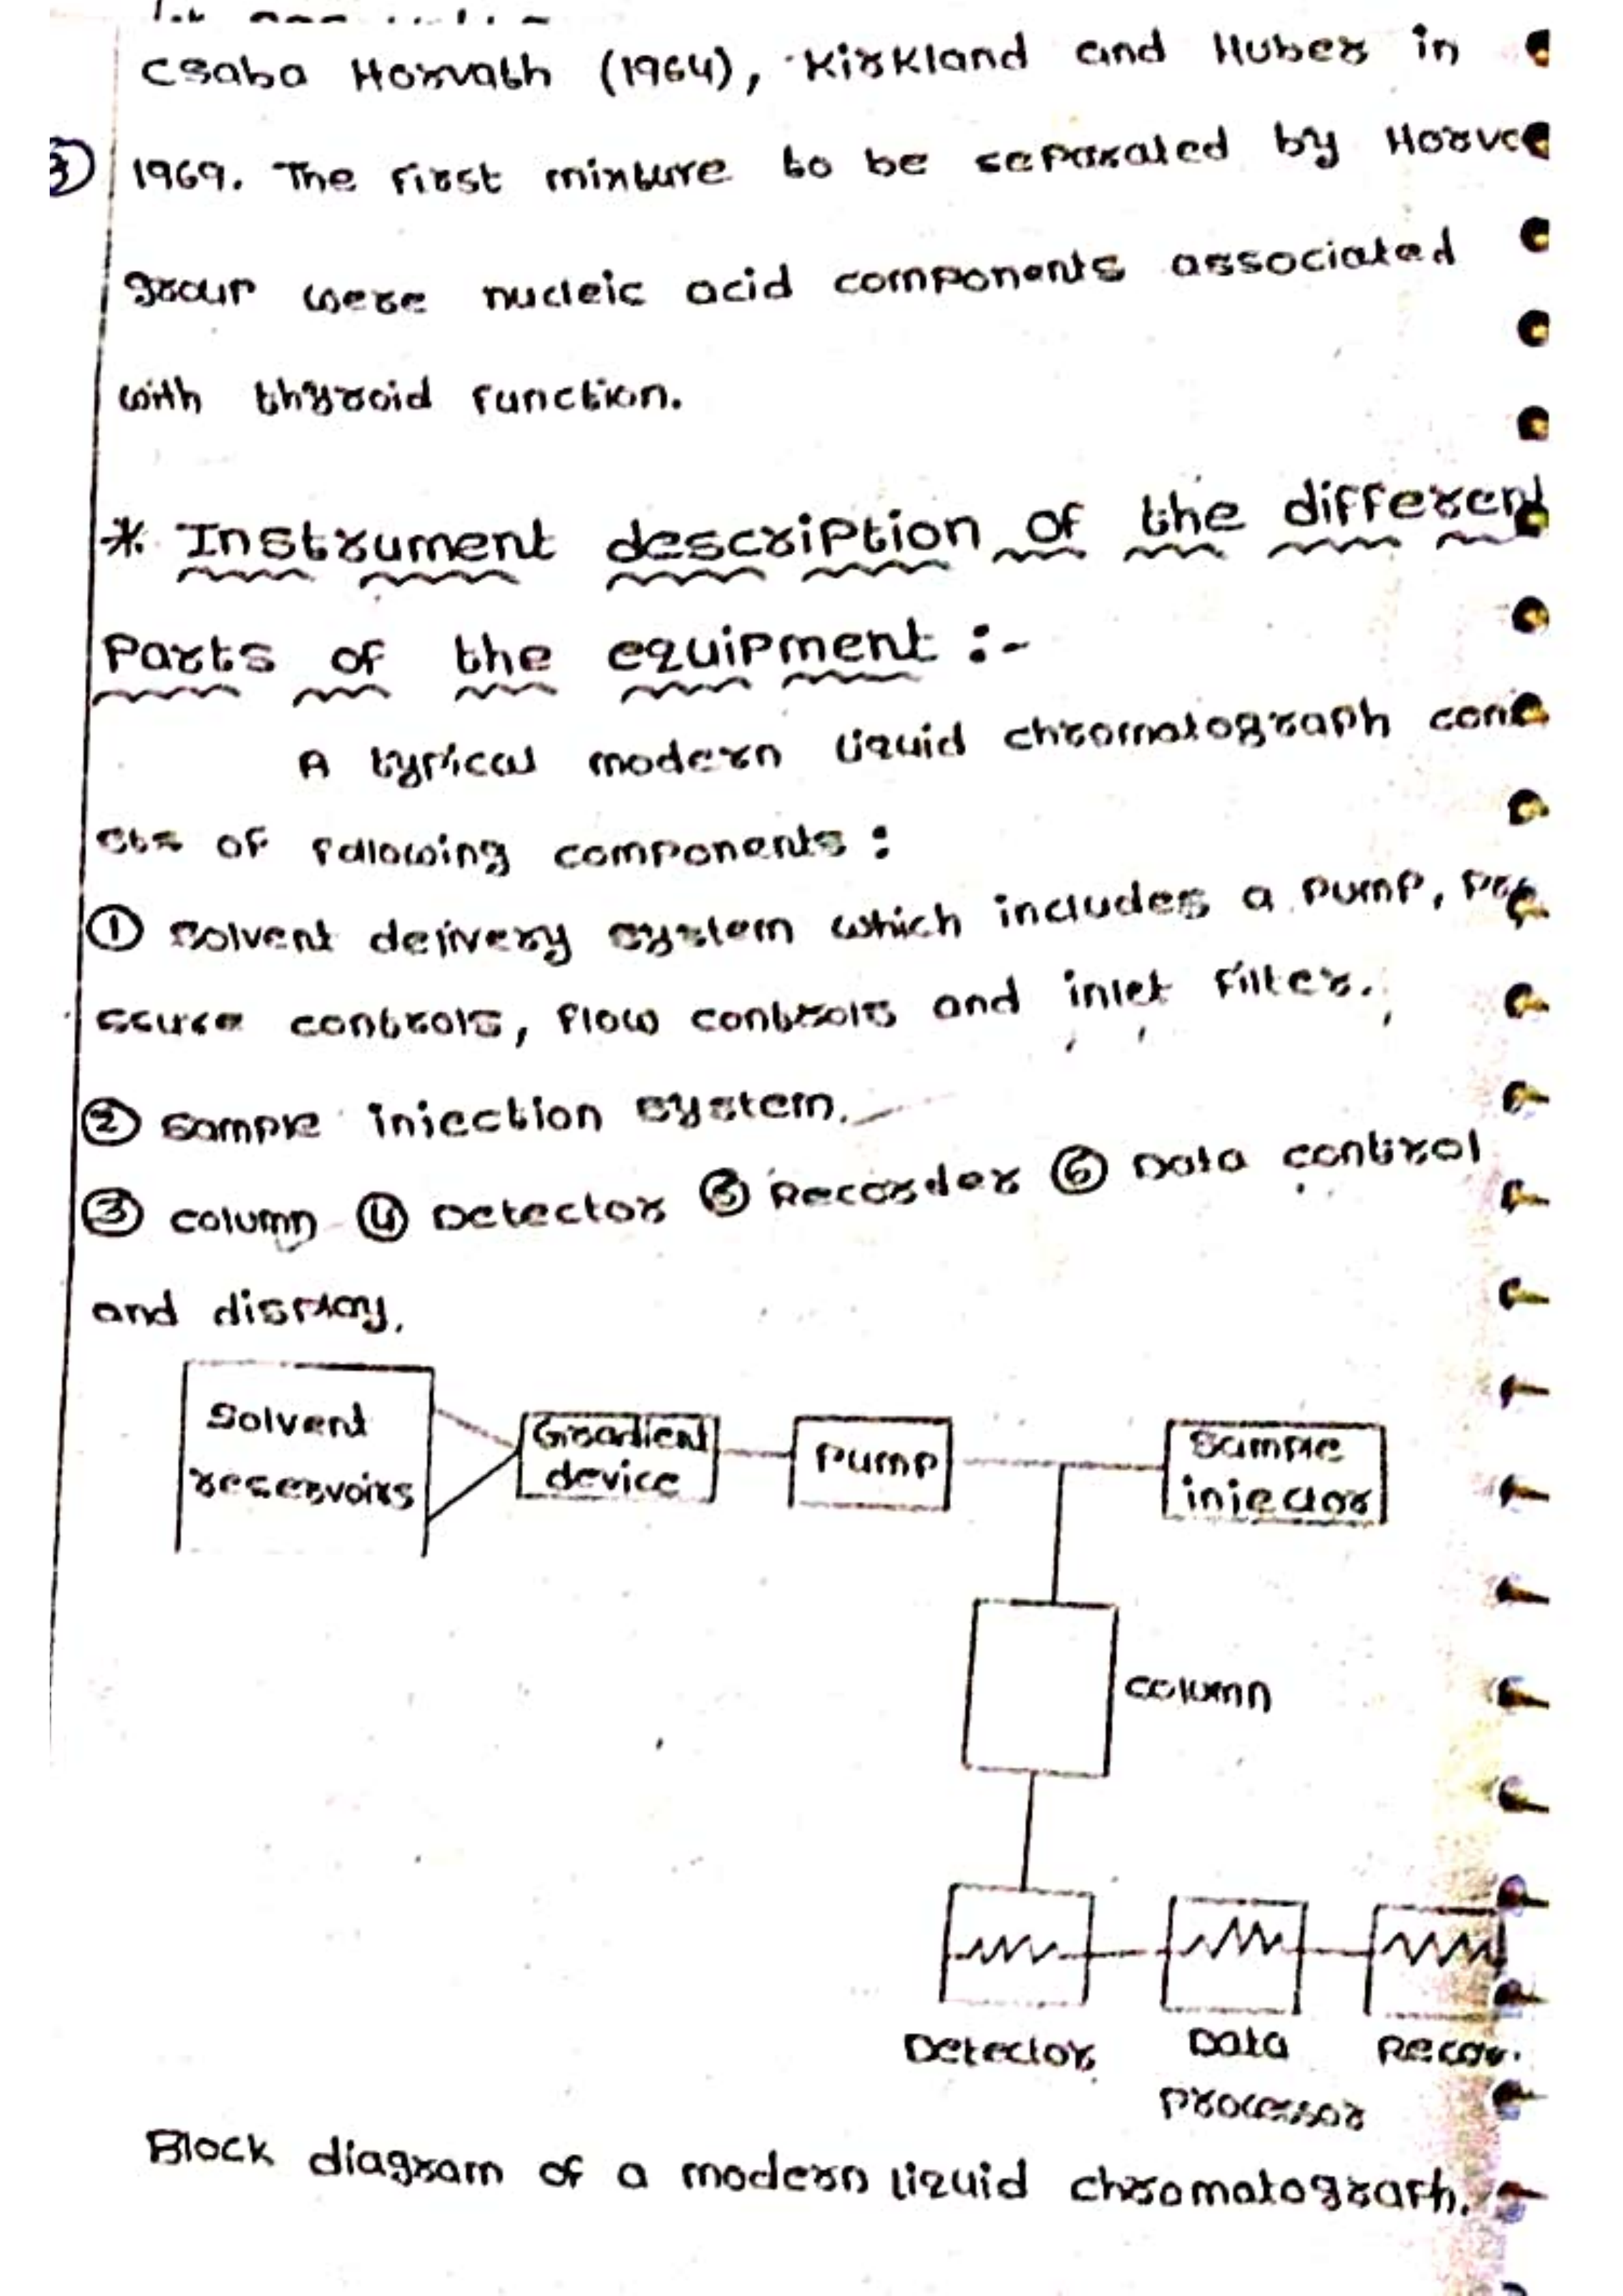 Csaba Horvath (1964), Kirkland and Huber in
③ 1969. The first mixture to be separated by Horva
group were nucleic acid components associated
with thyroid function.
* Instrument description of the different
Parts of the equipment :-
A typical modern liquid chromatograph consi
sts of following components :
① Solvent delivery system which includes a pump, pre
ssure controls, flow controls and inlet filter.
② Sample injection system.
③ column ④ Detector ⑤ Recorder ⑥ Data control
and display.
Solvent
reservoirs
Gradient
device
Pump
Sample
injector
column
Detector
Data
processor
Recor.
Block diagram of a modern liquid chromatograph.